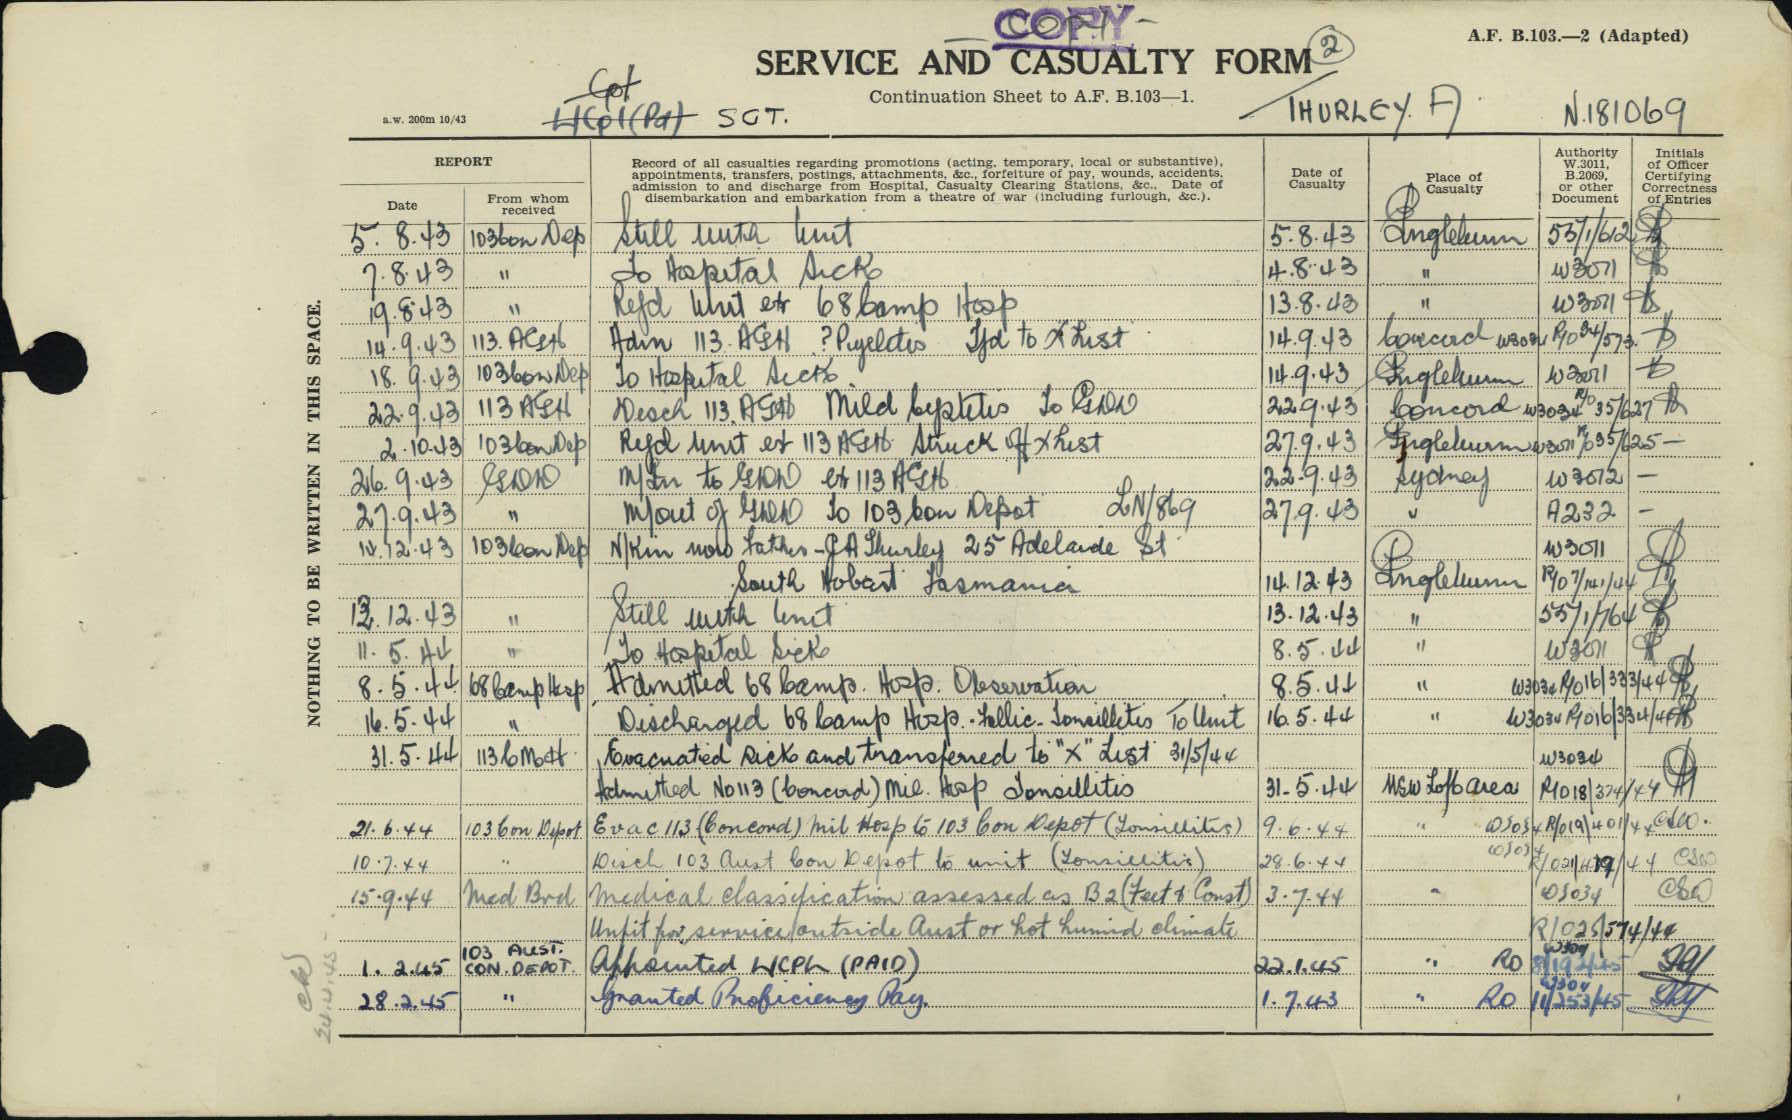 COPY
SERVICE AND CASUALTY FORM 2
A.F. B.103.—2 (Adapted)
Continuation Sheet to A.F. B.103—1.
a.w. 200m 10/43
Cpl
L/Cpl (Pd) SGT. THURLEY. A N.181069
REPORT
Date
From whom received
Record of all casualties regarding promotions (acting, temporary, local or substantive),
appointments, transfers, postings, attachments, &c., forfeiture of pay, wounds, accidents,
admission to and discharge from Hospital, Casualty Clearing Stations, &c., Date of
disembarkation and embarkation from a theatre of war (including furlough, &c.).
Date of Casualty
Place of Casualty
Authority W.3011, B.2069, or other Document
Initials of Officer Certifying Correctness of Entries
NOTHING TO BE WRITTEN IN THIS SPACE.
5.8.43 103 Con Dep Still with Unit 5.8.43 Ingleburn 55/1/612
7.8.43 " To Hospital Sick 4.8.43 " W3011
19.8.43 " Rejd Unit ex 68 Camp Hosp 13.8.43 " W3011
14.9.43 113 AGH Adm 113 AGH ? Pyelitis Tfd to X List 14.9.43 Concord W3034 R/O 34/573
18.9.43 103 Con Dep To Hospital Sick 14.9.43 Ingleburn W3011
22.9.43 113 AGH Disch 113 AGH Mild Cystitis To GDD 22.9.43 Concord W3034 R/O 35/627
2.10.43 103 Con Dep Rejd Unit ex 113 AGH Struck off X List 27.9.43 Ingleburn W3011 R/O 35/625 —
26.9.43 GDD M/In to GDD ex 113 AGH 22.9.43 Sydney W3012 —
27.9.43 " M/out of GDD To 103 Con Depot LN/869 27.9.43 " A232 —
14.12.43 103 Con Dep N/Kin now Father - Thurley 25 Adelaide St W3011
South Hobart Tasmania 14.12.43 Ingleburn R/O 7/141/44
13.12.43 " Still with Unit 13.12.43 " 55/1/764
11.5.44 " To Hospital Sick 8.5.44 " W3011
8.5.44 68 Camp Hosp Admitted 68 Camp. Hosp. Observation 8.5.44 " W3034 R/O 16/333/44
16.5.44 " Discharged 68 Camp Hosp. Follic. Tonsillitis To Unit 16.5.44 " W3034 R/O 16/334/44
31.5.44 113 C Mil H Evacuated sick and transferred to "X" List 31/5/44 W3034
Admitted No 113 (Concord) Mil. Hosp Tonsillitis 31.5.44 NSW LofC area R/O 18/374/44
21.6.44 103 Con Depot Evac 113 (Concord) Mil Hosp to 103 Con Depot (Tonsillitis) 9.6.44 " W3034 R/O 19/401/44
10.7.44 " Disch 103 Aust Con Depot to unit (Tonsillitis) 28.6.44 W3034 R/O 21/419/44
15.9.44 Med Brd Medical classification assessed as B2 (Feet & Const) 3.7.44 " W3034
Unfit for service outside Aust or hot humid climate R/O 25/574/44
1.2.45 103 AUST. CON. DEPOT. Appointed L/CPL (PAID) 22.1.45 " RO W3011 8/192/45
28.2.45 " Granted Proficiency Pay. 1.7.43 " RO 11/253/45
24.4.45